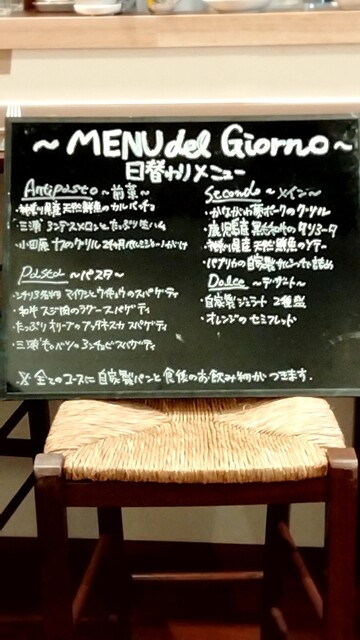 ~MENU del Giorno~
日替わりメニュー
Antipasto ~前菜~
・神奈川県産 天然鮮魚のカルパッチョ
・三浦 コンテスメロンとたっぷり生ハム
・小田原 ナスのグリル
Pasta ~パスタ~
・シチリア風 イワシとウイキョウのスパゲティ
・和牛スジ肉のラグースパゲティ
・たっぷりオリーブのプッタネスカ スパゲティ
・三浦 キャベツのアンチョビスパゲティ
Secondo ~メイン~
・かながわ夢ポークのグリル
・鹿児島産 黒毛和牛のタリアータ
・神奈川県産 天然鮮魚のソテー
・パプリカの自家製サルシッチャ詰め
Dolce ~デザート~
・自家製ジェラート 2種盛
・オレンジのセミフレッド
※全てのコースに自家製パンと食後のお飲み物がつきます.